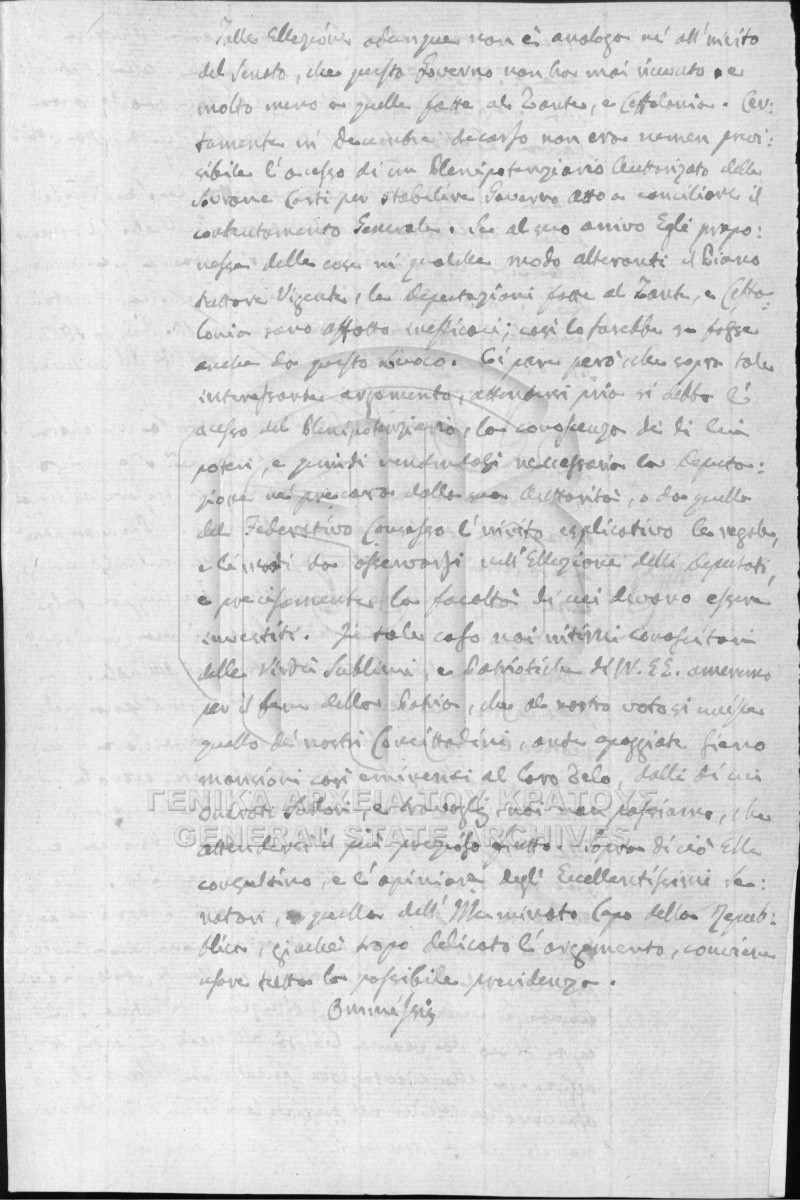 Talle Ellezione adunque non è analoga nè all'invito
del Senato, che questo Governo non ha mai ricevuto e
molto meno a quelle fatte al Zante, e Ceffalonia. Cer:
tamente in Decembre decorso non era nemen previ:
sibile l'acesso di un Plenipotenziario Autorizato dalle
Sovrane Corti per stabilire Governo atto a conciliare il
contentamento Generale. Se al suo arrivo Egli propo:
nesse delle cose in qualche modo alteranti il Piano
Vigente, le Deputazioni fatte al Zante, e Ceffa:
lonia sarano affatto inefficaci; così lo sarebbe se fosse
anche da questo. Ci pare però, che sopra tale
interessante argomento, attendersi pria si debba l'
acesso del Plenipotenziario, la conoscenza dei di lui
poteri, e quindi rendendosi necessaria la Deputa:
zione nei dalla sua Auttorità, o da quella
del Federativo Consesso l'invito esplicativo le regole,
e li modi da osservarsi nell'Ellezione delli Deputati,
e precisamente la facoltà di cui devono essere
investiti. In tale caso noi intimi conoscitori
delle Virtù Sublimi, e Patriotiche di VV. EE. ameremo
per il bene della Patria, che al nostro voto si unisse
quello de' nostri Concittadini, onde apoggiate siano
mansioni così eminenti al loro Zelo, dalli di cui
onorati Sudori, e travagli, noi non possiamo, che
attenderci il più prezioso frutto. Sopra di ciò Elle
consultino, e l'opinione degl'Eccellentissimi Se:
natori, e quella dell'Illuminato Capo della Repub:
blica, giachè tropo delicato l'argomento, conviene
usare tutta la possibile previdenza.
Ommissis
ΓΕΝΙΚΑ ΑΡΧΕΙΑ ΤΟΥ ΚΡΑΤΟΥΣ
GENERAL STATE ARCHIVES